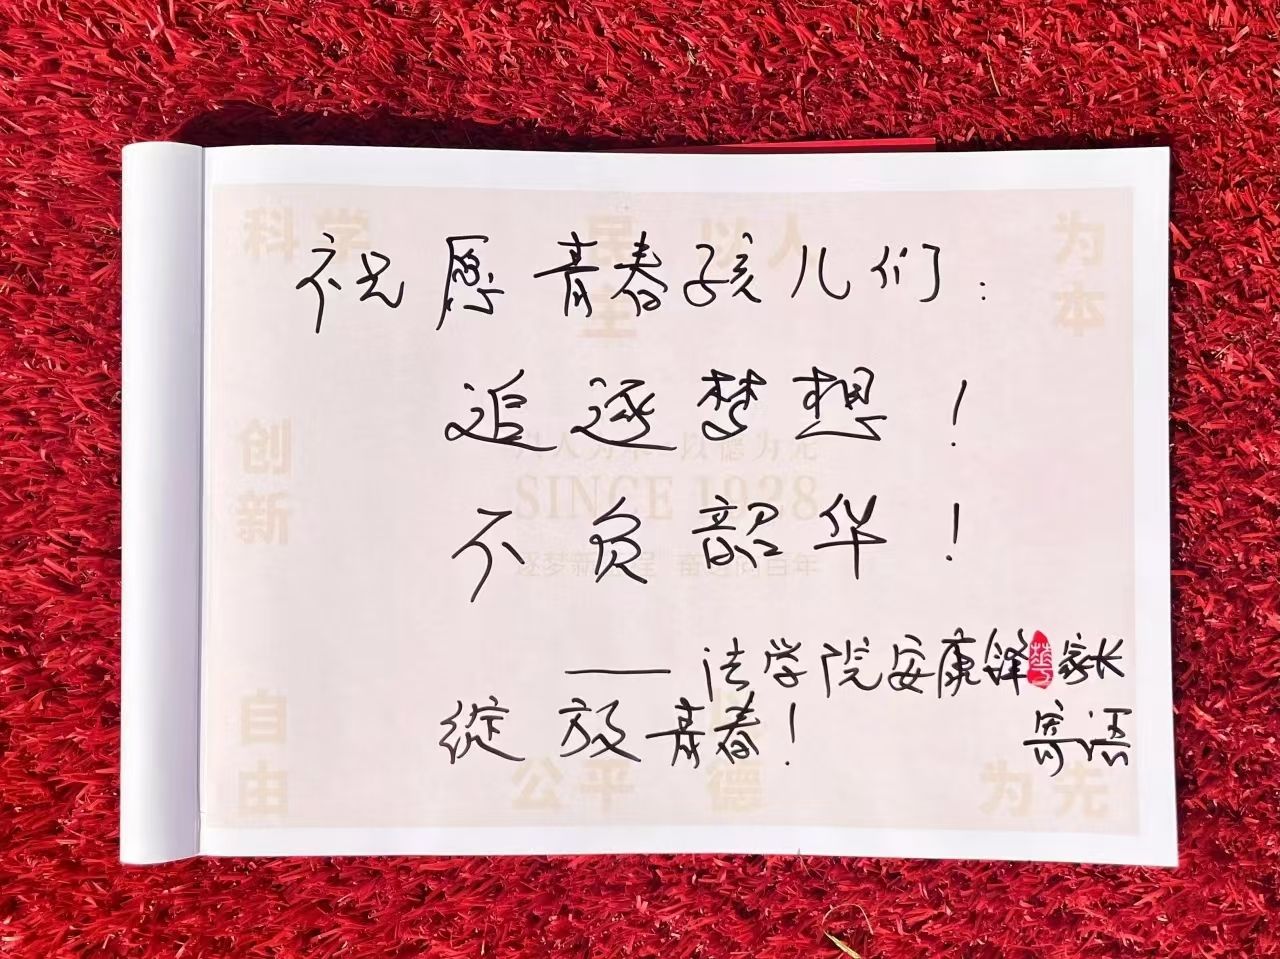 祝愿青春孩儿们：
追逐梦想！
不负韶华！
——法学院安康锋家长
绽放青春！
寄语
科学
民主
以人
为本
创新
以人为本 以德为先
SINCE 1928
逐梦新征程 奋进向百年
自由
公平
以德
为先